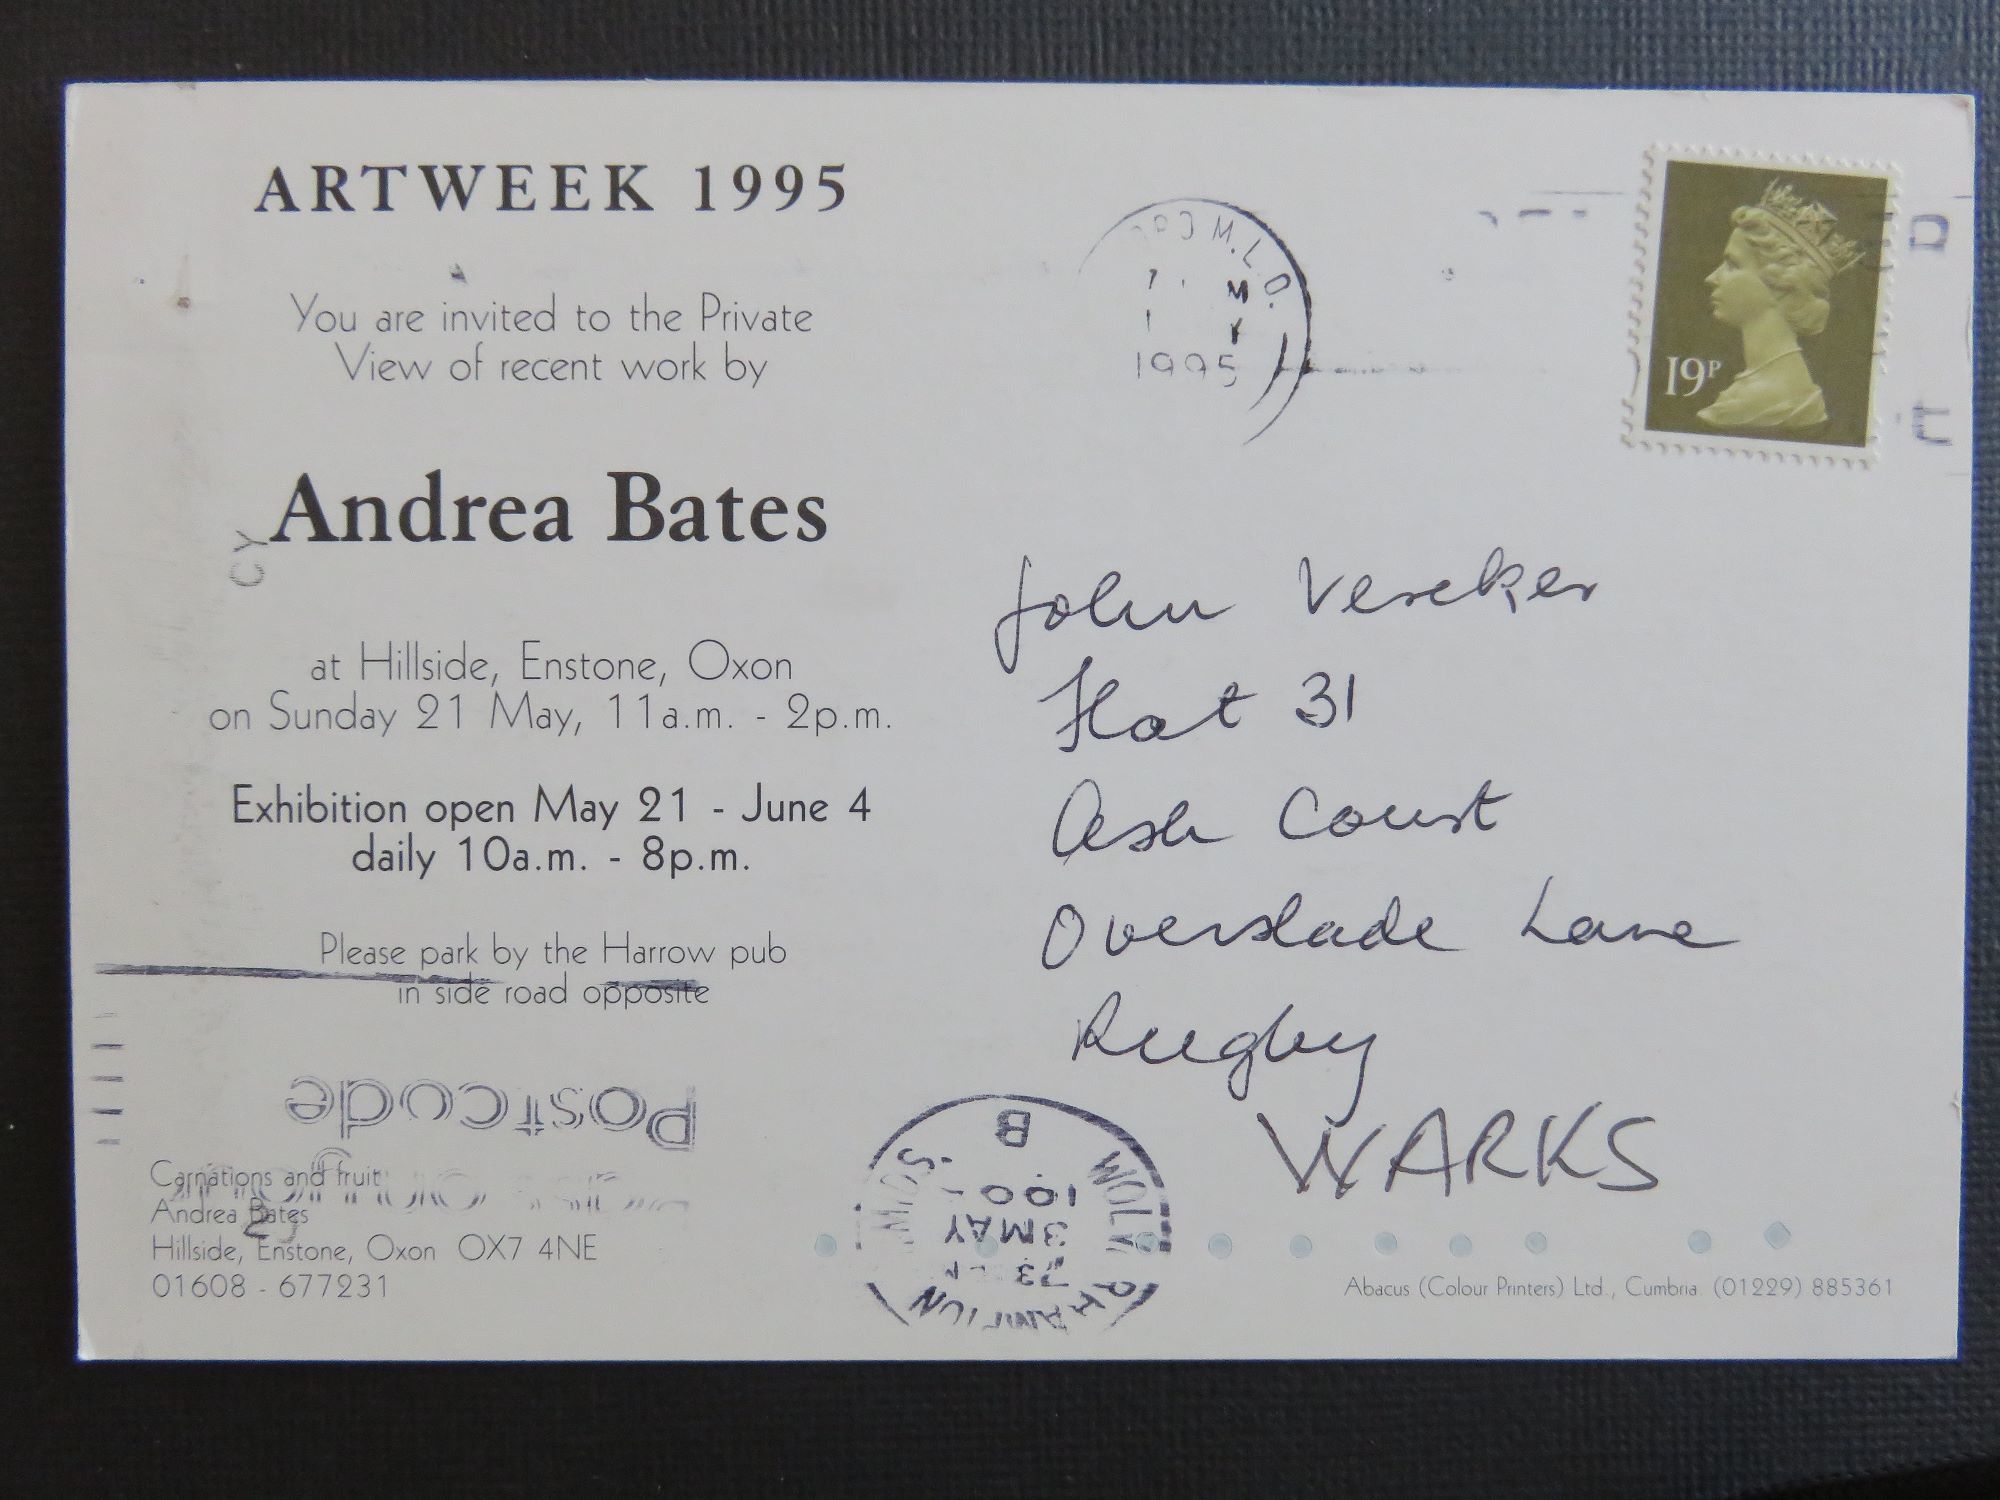 ARTWEEK 1995
You are invited to the Private
View of recent work by
Andrea Bates
at Hillside, Enstone, Oxon
on Sunday 21 May, 11a.m. - 2p.m.
Exhibition open May 21 - June 4
daily 10a.m. - 8p.m.
Please park by the Harrow pub
in side road opposite
Postcode
Carnations and fruit
Andrea Bates
Hillside, Enstone, Oxon OX7 4NE
01608 - 677231
CY
M.L.O.
1995
19P
John Vereker
Flat 31
Ash Court
Overslade Lane
Rugby
WARKS
B
3 MAY
Abacus (Colour Printers) Ltd., Cumbria. (01229) 885361